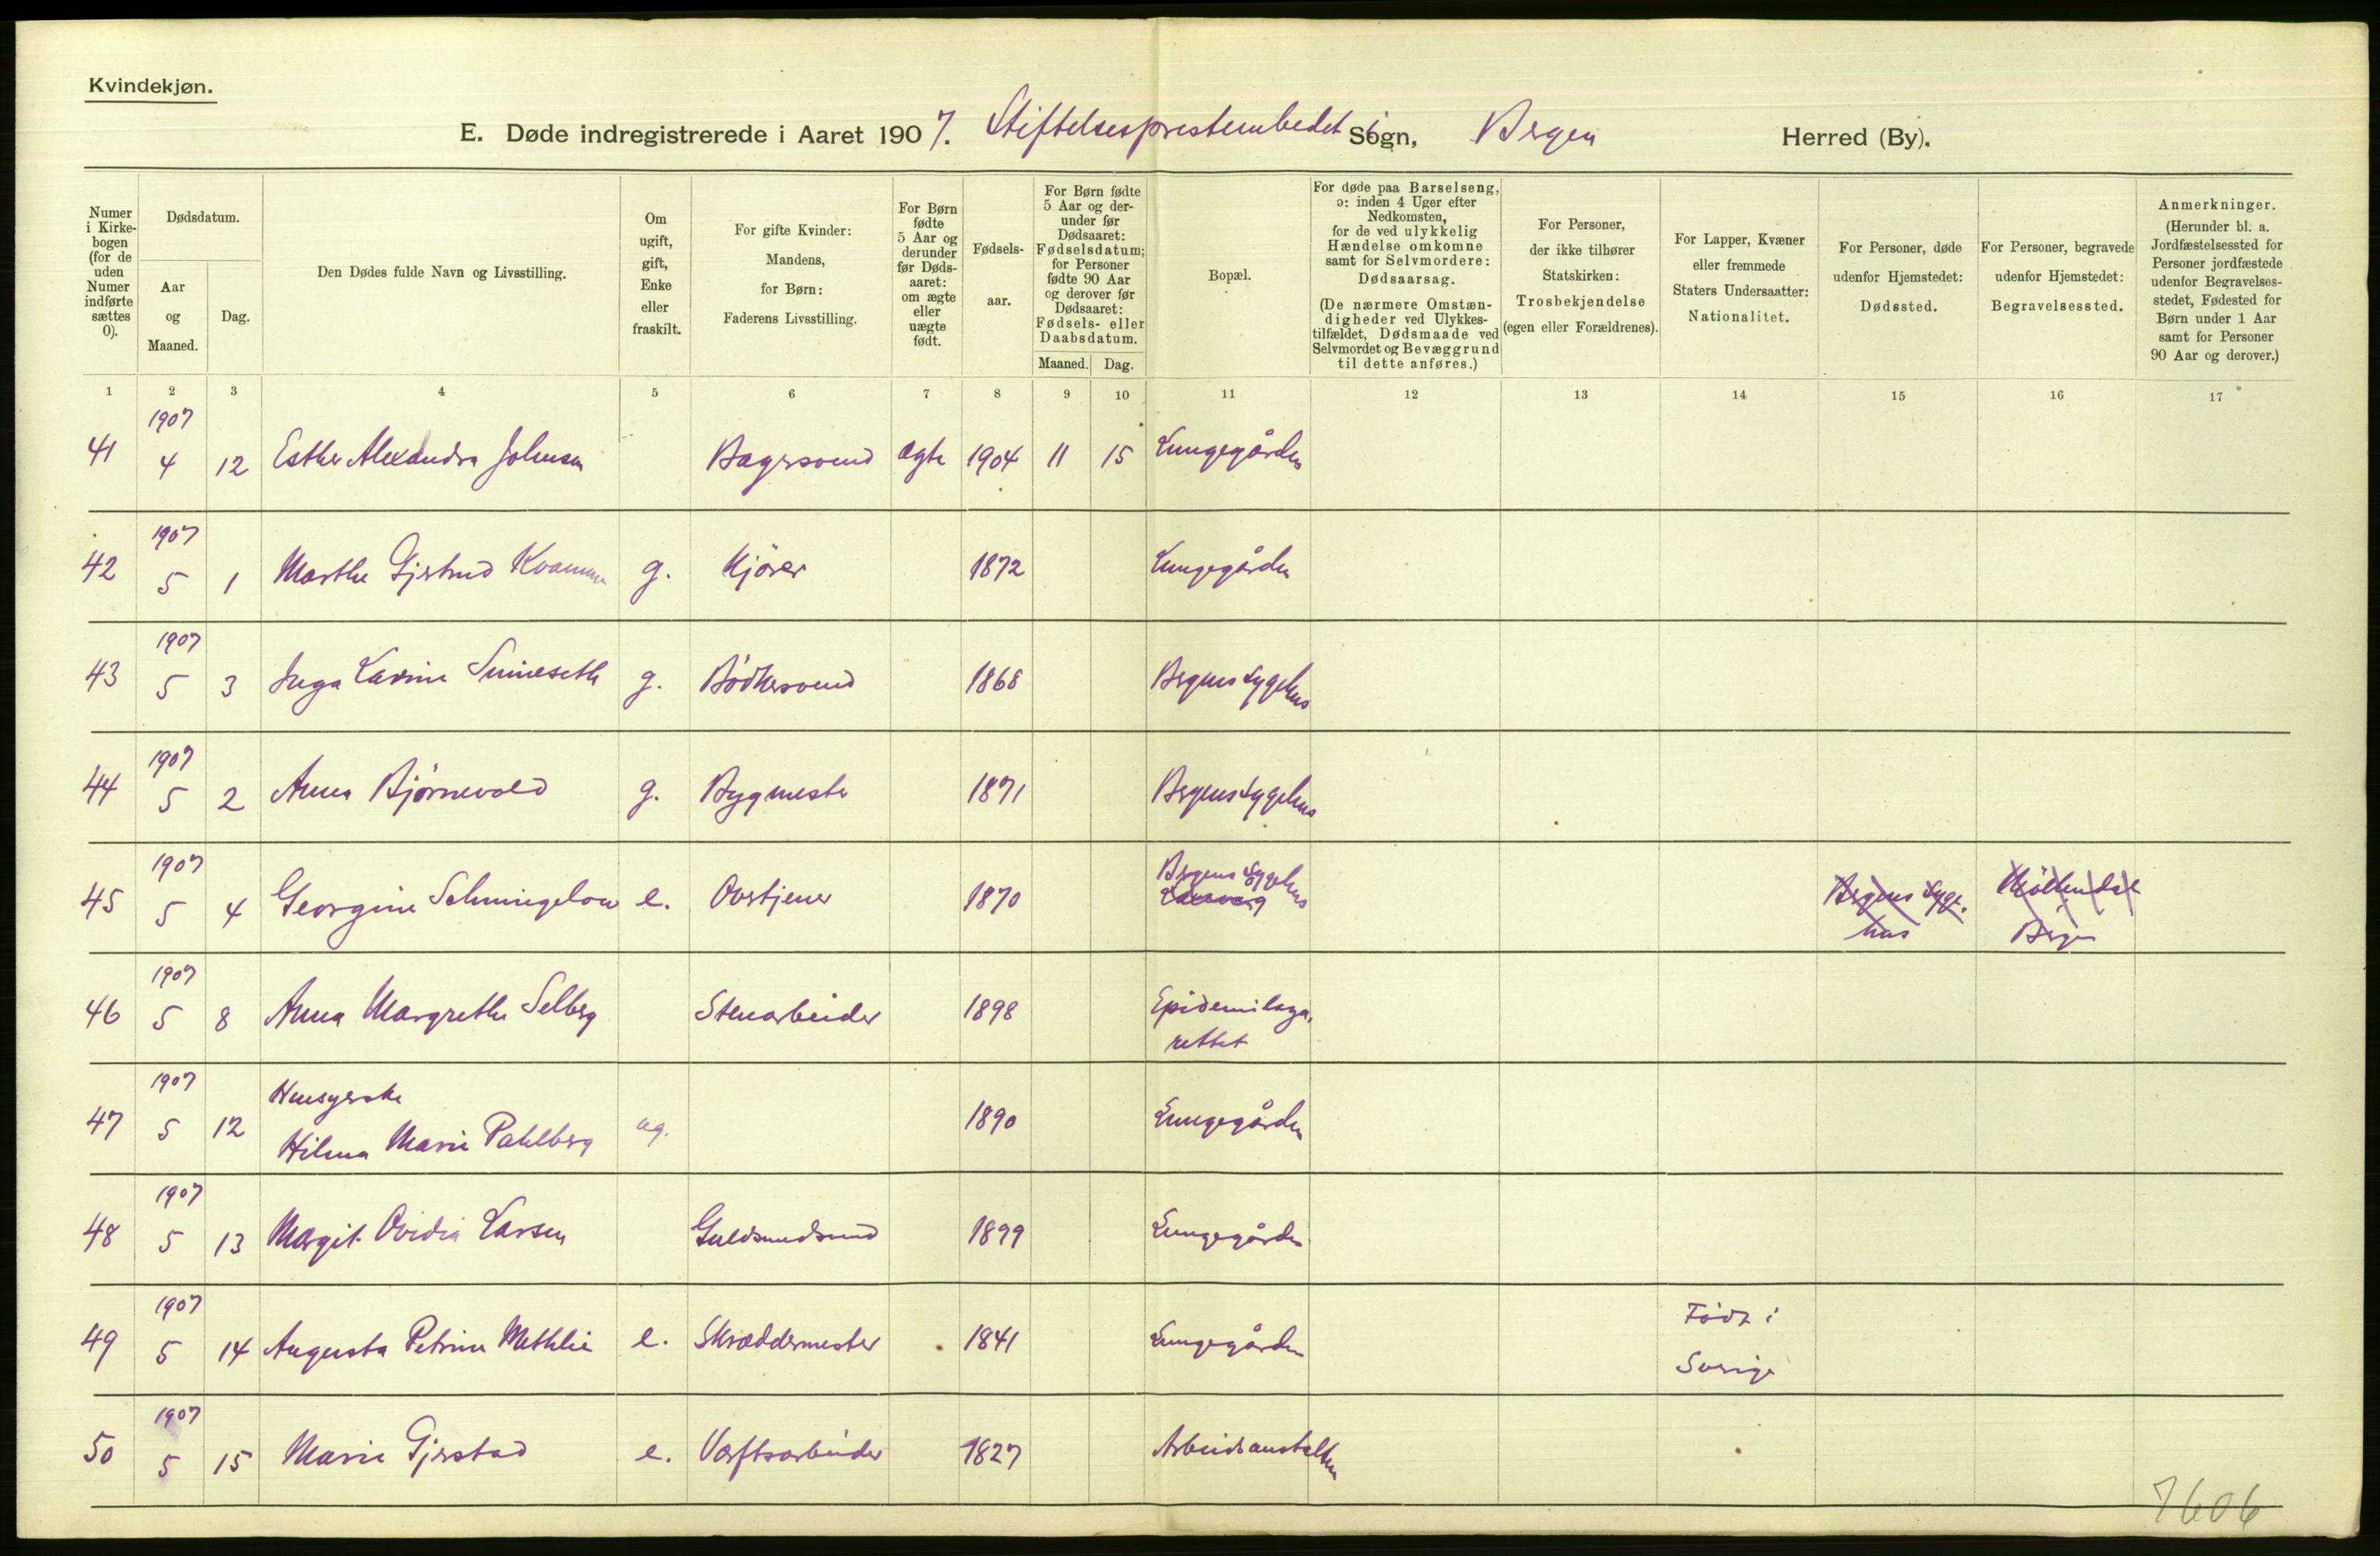 Kvindekjøn.
E. Døde indregistrerede i Aaret 1907. Stiftelsesprestembedet i Sogn, Bergen Herred (By).
Numer i Kirke-bogen (for de uden Numer indførte sættes 0).
Dødsdatum.
Aar og Maaned.
Dag.
Den Dødes fulde Navn og Livsstilling.
Om ugift, gift, Enke eller fraskilt.
For gifte Kvinder: Mandens, for Børn: Faderens Livsstilling.
For Børn fødte 5 Aar og derunder før Døds-aaret: om ægte eller uægte født.
Fødsels-aar.
For Børn fødte 5 Aar og der-under før Dødsaaret: Fødselsdatum; for Personer fødte 90 Aar og derover før Dødsaaret: Fødsels- eller Daabsdatum.
Maaned. Dag.
Bopæl.
For døde paa Barselseng, ɔ: inden 4 Uger efter Nedkomsten, for de ved ulykkelig Hændelse omkomne samt for Selvmordere: Dødsaarsag. (De nærmere Omstæn-digheder ved Ulykkes-tilfældet, Dødsmaade ved Selvmordet og Bevæggrund til dette anføres.)
For Personer, der ikke tilhører Statskirken: Trosbekjendelse (egen eller Forældrenes).
For Lapper, Kvæner eller fremmede Staters Undersaatter: Nationalitet.
For Personer, døde udenfor Hjemstedet: Dødssted.
For Personer, begravede udenfor Hjemstedet: Begravelsessted.
Anmerkninger. (Herunder bl. a. Jordfæstelsessted for Personer jordfæstede udenfor Begravelses-stedet, Fødested for Børn under 1 Aar samt for Personer 90 Aar og derover.)
1 2 3 4 5 6 7 8 9 10 11 12 13 14 15 16 17
1907
41 4 12 Esther Alexandra Johnsen Bagersvend ægte 1904 11 15 Lungegården
1907
42 5 1 Marthe Gjertrud Kvamme g. Kjører 1872 Lungegården
1907
43 5 3 Inga Lavine Sunieseth g. Bødkersvend 1868 Bergens Sygehus
1907
44 5 2 Anna Bjørnevold g. Bygmester 1871 Bergens Sygehus
1907 Bergens Sygehus
45 5 4 Georgine Schmingelow e. Overtjener 1870 Bergens Syge-hus Möllendal Bergen
1907
46 5 8 Anna Margrethe Selberg Stenarbeider 1898 Epidemilaza-rettet
1907 Huusyerske
47 5 12 Hilma Marie Pahlberg ug. 1890 Lungegården
1907
48 5 13 Margit Ovidia Larsen Guldsmedsvend 1899 Lungegården
1907 Född i
49 5 14 Augusta Petrine Methlie e. Skræddermester 1841 Lungegården Sverige
1907
50 5 15 Marie Gjerstad e. Værftsarbeider 1827 Arbeidsanstalten
7606